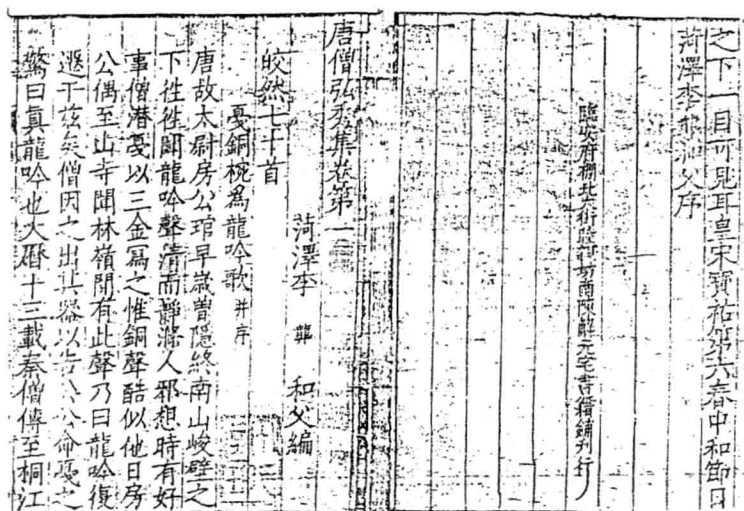 之下一目可見耳皇宋寶祐第六春中和節日
菏澤李龏和父序
臨安府棚北大街睦親坊南陳解元宅書籍鋪刊行
唐僧弘秀集卷第一
菏澤李 龏 和父編
皎然七十首
戞銅椀爲龍吟歌 并序
唐故太尉房公琯早歲曽隱終南山峻壁之
下徃徃聞龍吟聲清而靜滌人邪想時有好
事僧潜戞以三金寫之惟銅聲酷似他日房
公偶至山寺聞林嶺間有此聲乃曰龍吟復
遷于兹矣僧因之出其器以告公公命戞之
驚曰眞龍吟也大曆十三載秦僧傳至桐江